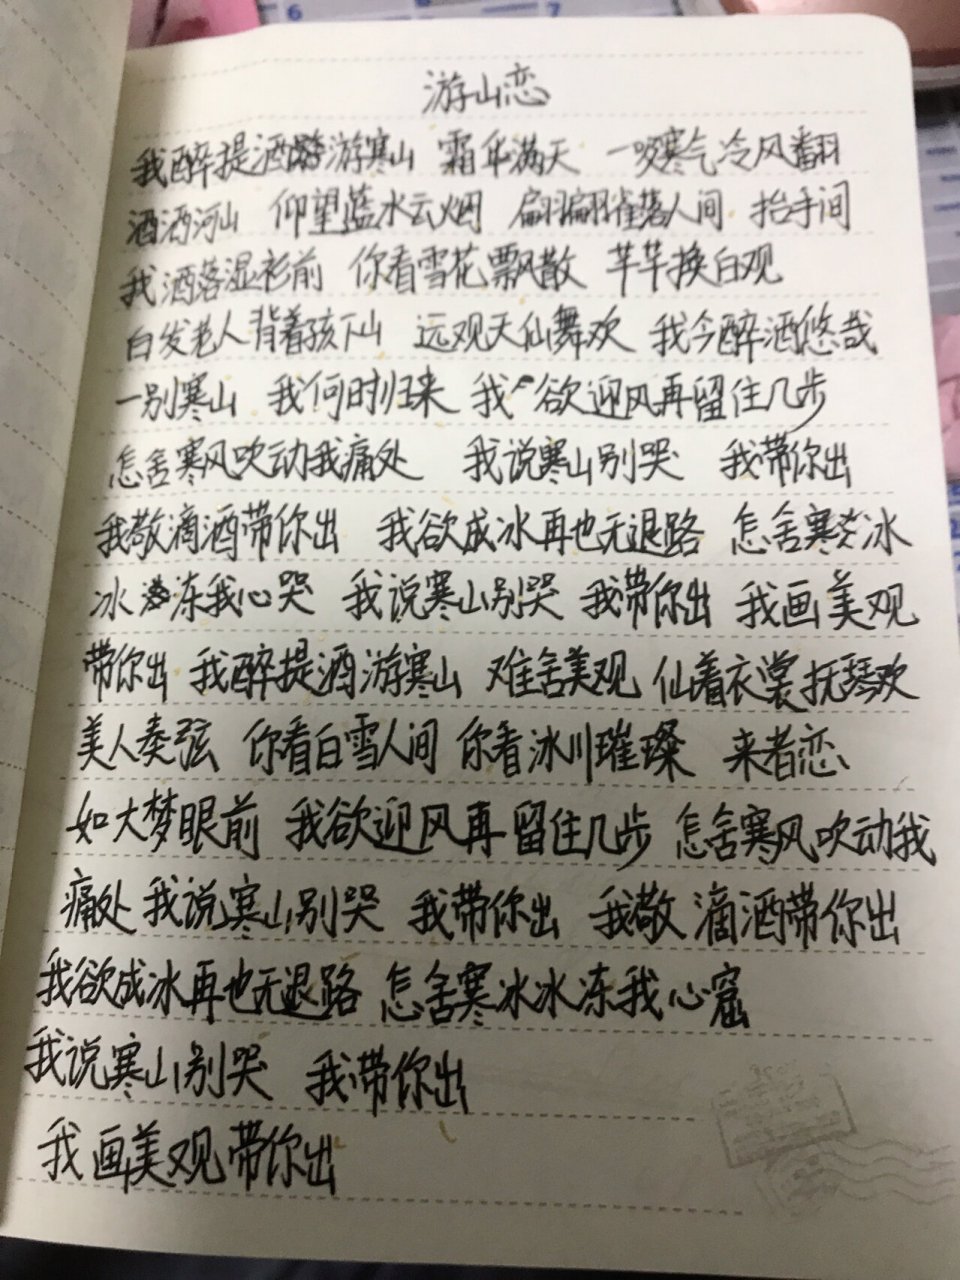 游山恋
我醉提酒游寒山 霜华满天 一咬寒气冷风翻
酒洒河山 仰望蓝水云烟 翩翩雀落人间 抬手间
我洒落湿衫前 你看雪花飘散 芊芊换白观
白发老人背着孩下山 远观天仙舞欢 我今醉洒悠哉
一别寒山 我何时归来 我欲迎风再留住几步
怎舍寒风吹动我痛处 我说寒山别哭 我带你出
我敬滴酒带你出 我欲成冰再也无退路 怎舍寒冰
冰冻我心哭 我说寒山别哭 我带你出 我画美观
带你出 我醉提酒游寒山 难舍美观 仙着衣裳抚琴欢
美人奏弦 你看白雪人间 你看冰川璀璨 来者恋
如大梦眼前 我欲迎风再留住几步 怎舍寒风吹动我
痛处 我说寒山别哭 我带你出 我敬滴酒带你出
我欲成冰再也无退路 怎舍寒冰冰冻我心窟
我说寒山别哭 我带你出
我画美观带你出
6
7